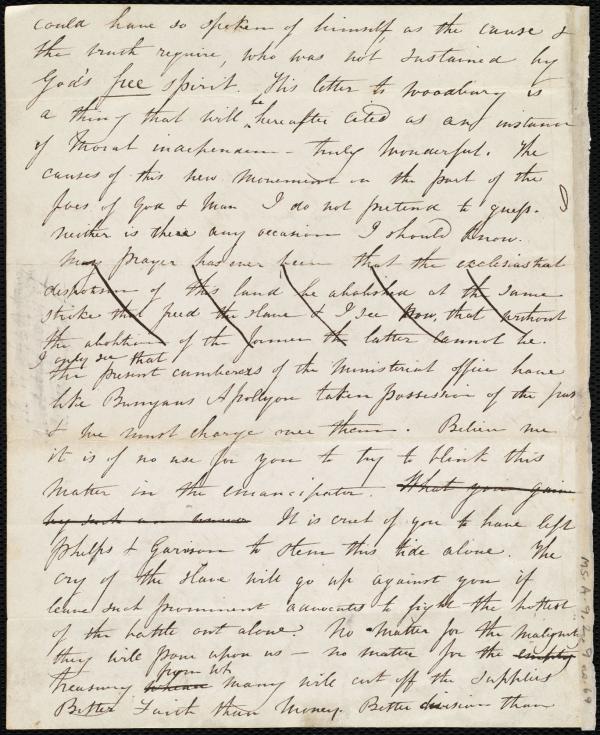 could have so spoken of himself as the cause &
the truth require, who was not sustained by
God's free spirit. His letter to Woodbury is
a thing that will be hereafter cited as an instance
of Moral independence - truly wonderful. The
causes of this new movement on the part of the
foes of God & Man I do not pretend to guess.
Neither is there any occasion I should know.
My prayer has ever been that the ecclesiastical
despotism of this land be abolished at the same
stroke that freed the slave & I see now, that without
the abolition of the former the latter cannot be.
I only see that
the present cumberers of the Ministerial office have
like Bunyans Apollyon taken possession of the pass
& we must charge over them. Believe me
it is of no use for you to try to blink this
matter in the emancipator. What you gain
by such an
It is cruel of you to have left
Phelps & Garrison to stem this tide alone. The
cry of the slave will go up against you if
leave such prominent advocates to fight the hottest
of the battle out alone. No matter for the malignity
they will pour upon us - no matter for the empty
treasury from wh many will cut off the supplies
Better Faith than Money. Better division than
MS A 9.2 v 9 no 69